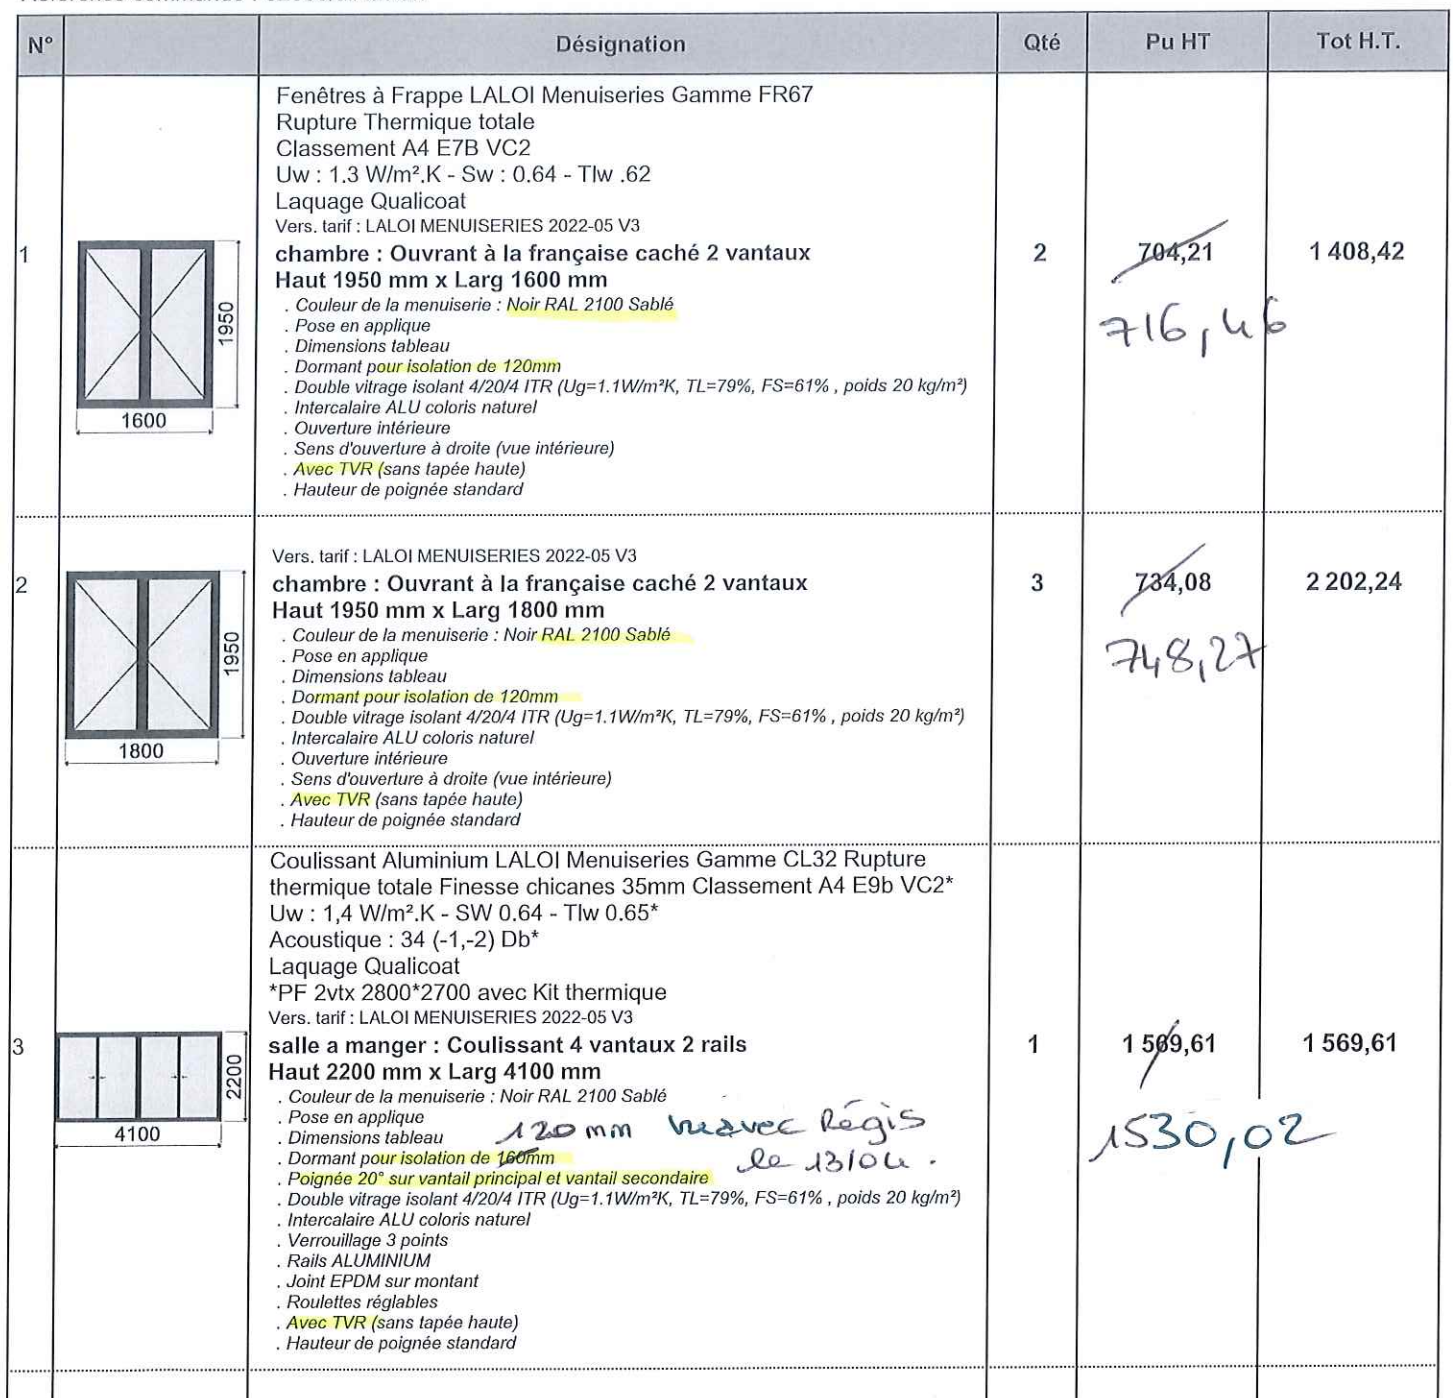 N° Désignation Qté Pu HT Tot H.T.
Fenêtres à Frappe LALOI Menuiseries Gamme FR67
Rupture Thermique totale
Classement A4 E7B VC2
Uw : 1.3 W/m².K - Sw : 0.64 - Tlw .62
Laquage Qualicoat
Vers. tarif : LALOI MENUISERIES 2022-05 V3
1 chambre : Ouvrant à la française caché 2 vantaux 2 704,21 1 408,42
Haut 1950 mm x Larg 1600 mm
716,46
. Couleur de la menuiserie : Noir RAL 2100 Sablé
. Pose en applique
. Dimensions tableau
. Dormant pour isolation de 120mm
. Double vitrage isolant 4/20/4 ITR (Ug=1.1W/m²K, TL=79%, FS=61% , poids 20 kg/m²)
. Intercalaire ALU coloris naturel
. Ouverture intérieure
. Sens d'ouverture à droite (vue intérieure)
. Avec TVR (sans tapée haute)
. Hauteur de poignée standard
1950
1600
Vers. tarif : LALOI MENUISERIES 2022-05 V3
2 chambre : Ouvrant à la française caché 2 vantaux 3 734,08 2 202,24
Haut 1950 mm x Larg 1800 mm
748,27
. Couleur de la menuiserie : Noir RAL 2100 Sablé
. Pose en applique
. Dimensions tableau
. Dormant pour isolation de 120mm
. Double vitrage isolant 4/20/4 ITR (Ug=1.1W/m²K, TL=79%, FS=61% , poids 20 kg/m²)
. Intercalaire ALU coloris naturel
. Ouverture intérieure
. Sens d'ouverture à droite (vue intérieure)
. Avec TVR (sans tapée haute)
. Hauteur de poignée standard
1950
1800
Coulissant Aluminium LALOI Menuiseries Gamme CL32 Rupture
thermique totale Finesse chicanes 35mm Classement A4 E9b VC2*
Uw : 1,4 W/m².K - SW 0.64 - Tlw 0.65*
Acoustique : 34 (-1,-2) Db*
Laquage Qualicoat
*PF 2vtx 2800*2700 avec Kit thermique
Vers. tarif : LALOI MENUISERIES 2022-05 V3
3 salle a manger : Coulissant 4 vantaux 2 rails 1 1 569,61 1 569,61
Haut 2200 mm x Larg 4100 mm
. Couleur de la menuiserie : Noir RAL 2100 Sablé
. Pose en applique
. Dimensions tableau
120 mm vu avec Régis
le 13/04.
1530,02
. Dormant pour isolation de 160mm
. Poignée 20° sur vantail principal et vantail secondaire
. Double vitrage isolant 4/20/4 ITR (Ug=1.1W/m²K, TL=79%, FS=61% , poids 20 kg/m²)
. Intercalaire ALU coloris naturel
. Verrouillage 3 points
. Rails ALUMINIUM
. Joint EPDM sur montant
. Roulettes réglables
. Avec TVR (sans tapée haute)
. Hauteur de poignée standard
2200
4100